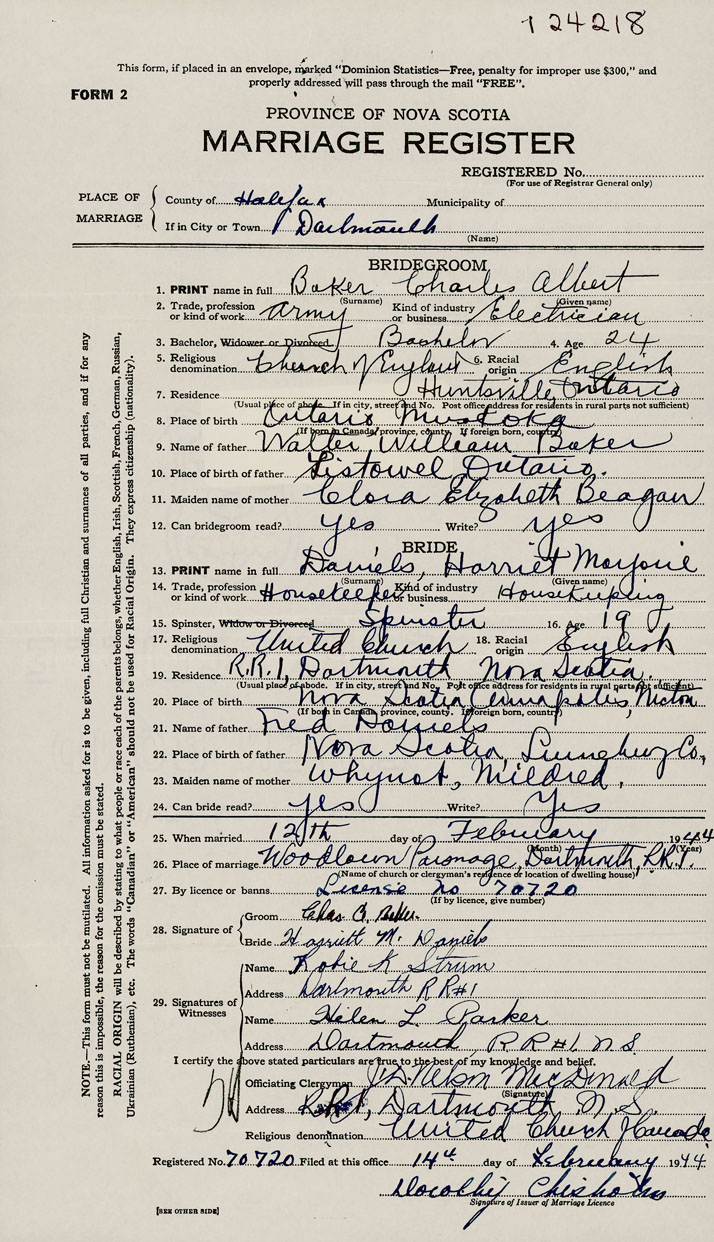 124218
This form, if placed in an envelope, marked "Dominion Statistics—Free, penalty for improper use $300," and
properly addressed will pass through the mail "FREE".
FORM 2
PROVINCE OF NOVA SCOTIA
MARRIAGE REGISTER
REGISTERED No.
(For use of Registrar General only)
PLACE OF MARRIAGE
County of Halifax Municipality of
If in City or Town Dartmouth
(Name)
BRIDEGROOM
1. PRINT name in full Baker Charles Albert
(Surname) (Given name)
2. Trade, profession or kind of work Army Kind of industry or business Electrician
3. Bachelor, Widower or Divorced Bachelor 4. Age 24
5. Religious denomination Church of England 6. Racial origin English
7. Residence Huntsville, Ontario
(Usual place of abode. If in city, street and No. Post office address for residents in rural parts not sufficient)
8. Place of birth Ontario Muskoka
(If born in Canada, province, county. If foreign born, country)
9. Name of father Walter William Baker
10. Place of birth of father Listowel Ontario.
11. Maiden name of mother Clora Elizabeth Beagan
12. Can bridegroom read? yes Write? yes
BRIDE
13. PRINT name in full Daniels, Harriet Marjorie
(Surname) (Given name)
14. Trade, profession or kind of work Housekeeper Kind of industry or business Housekeeping
15. Spinster, Widow or Divorced Spinster 16. Age 19
17. Religious denomination United Church 18. Racial origin English
19. Residence R.R.1, Dartmouth Nova Scotia.
(Usual place of abode. If in city, street and No. Post office address for residents in rural parts not sufficient)
20. Place of birth Nova Scotia Annapolis, Nicton
(If born in Canada, province, county. If foreign born, country)
21. Name of father Fred Daniels
22. Place of birth of father Nova Scotia, Lunenburg Co,
23. Maiden name of mother Whynot, Mildred.
24. Can bride read? yes Write? Yes
25. When married 12th day of February 1944
(Month) (Year)
26. Place of marriage Woodlawn Parsonage, Dartmouth, R.R.1.
(Name of church or clergyman's residence or location of dwelling house)
27. By licence or banns License no 70720
(If by licence, give number)
28. Signature of
Groom Chas A. Baker.
Bride Harriett M. Daniels
29. Signatures of Witnesses
Name Robie K Strum
Address Dartmouth R R #1
Name Helen L. Parker
Address Dartmouth R R #1 N S
I certify the above stated particulars are true to the best of my knowledge and belief.
Officiating Clergyman Nelson MacDonald
(Signature)
Address Dartmouth N. S.
Religious denomination United Church of Canada
Registered No. 70720 Filed at this office 14th day of February 1944
Dorothy Chisholm
Signature of Issuer of Marriage Licence
[SEE OTHER SIDE]
NOTE.—This form must not be mutilated. All information asked for is to be given, including full Christian and surnames of all parties, and if for any
reason this is impossible, the reason for the omission must be stated.
RACIAL ORIGIN will be described by stating to what people or race each of the parents belongs, whether English, Irish, Scottish, French, German, Russian,
Ukrainian (Ruthenian), etc. The words "Canadian" or "American" should not be used for Racial Origin. They express citizenship (nationality).